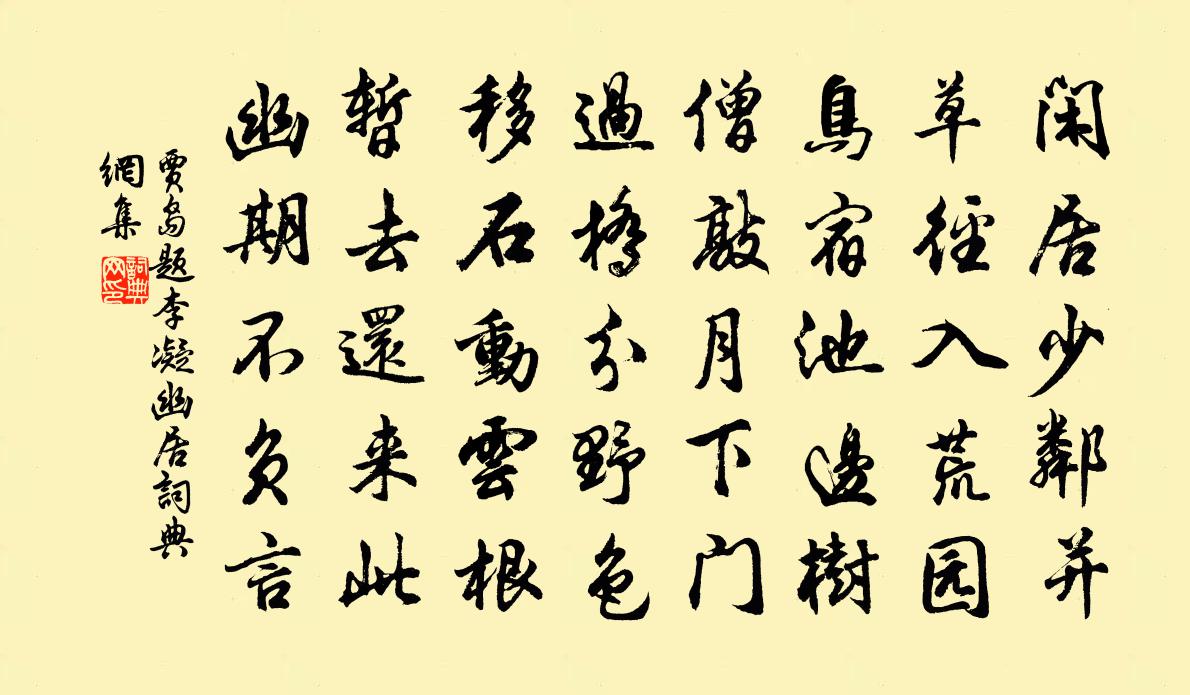 闲居少鄰并
草徑入荒园
鳥宿池邊樹
僧敲月下门
過橋分野色
移石動雲根
暫去還来此
幽期不负言
賈島题李凝幽居詞典
網集
詞典
网印